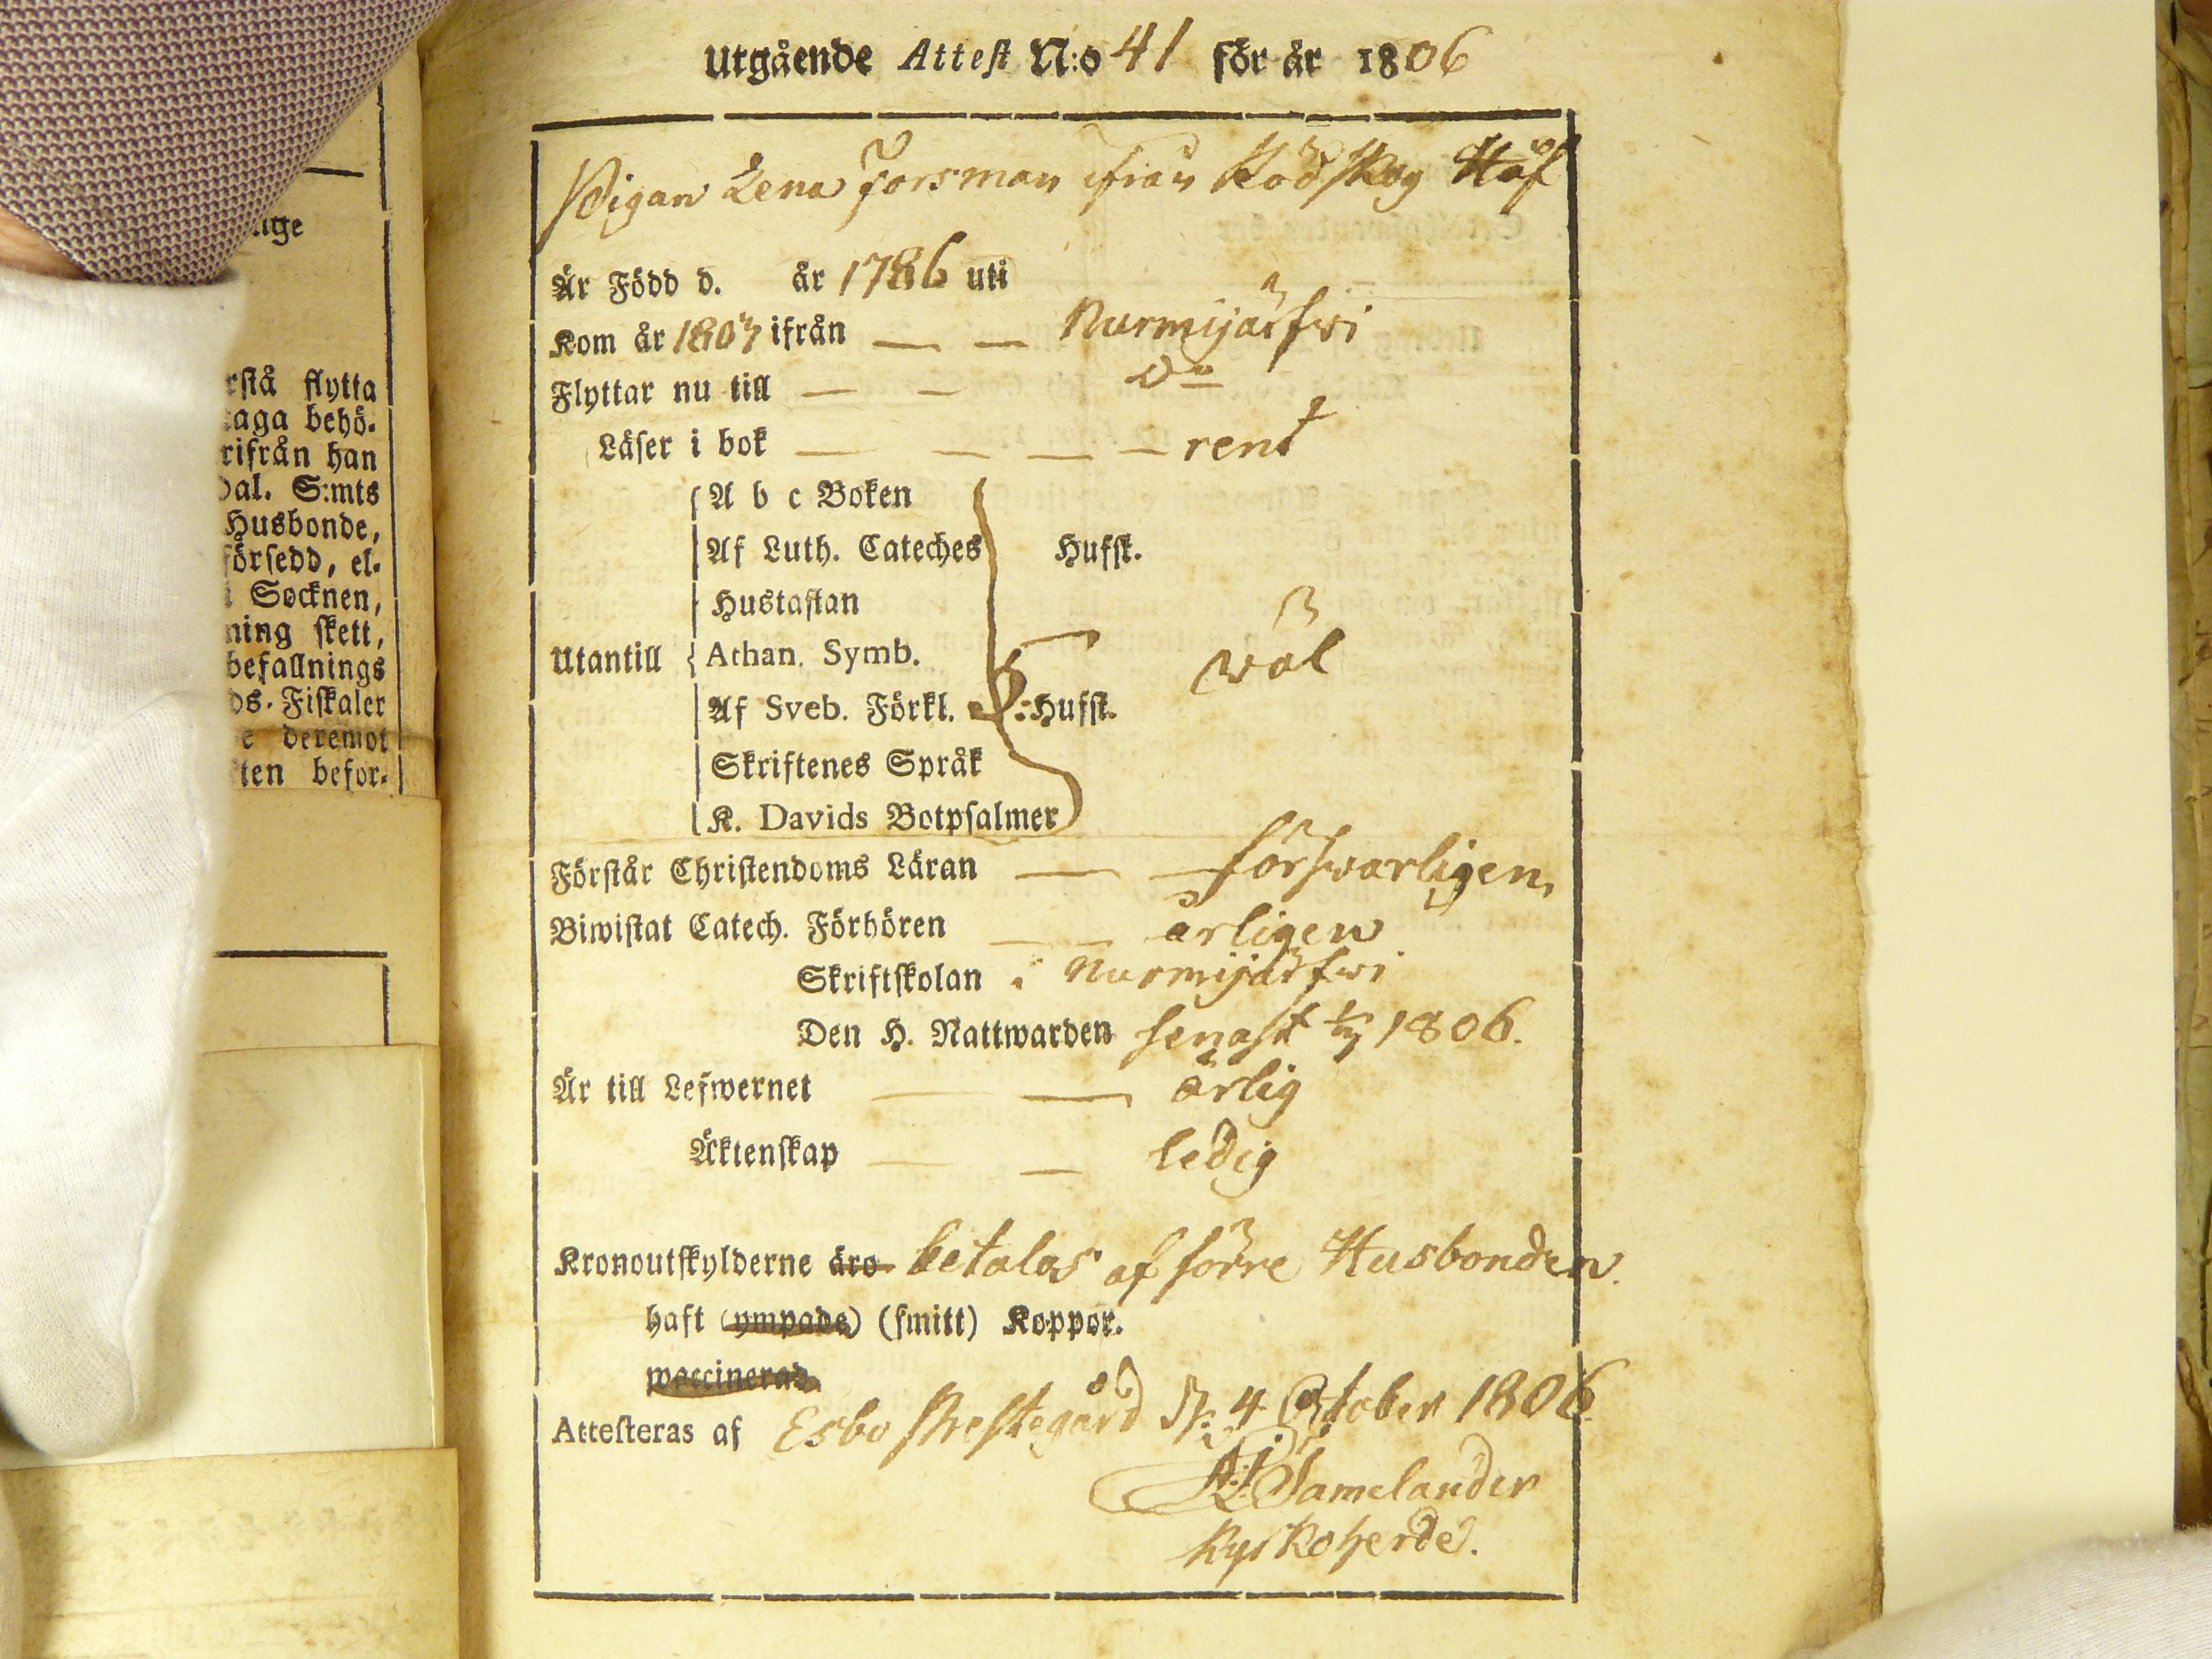 uge
rstå flytta
taga behö-
rifrån han
dal. S:mts
Husbonde,
försedd, el-
i Socknen,
ning skett,
befallnings
ds-Fiskaler
e deremot
ten befor-
Utgående Attest N:o 41 för år 1806
Pigan Lena Forsman ifrån Rödskog
Är Född d. år 1786 uti
Kom år 1803 ifrån — — Nurmijärfwi
Flyttar nu till — — Do
Läser i bok — — — — rent
A b c Boken
Af Luth. Cateches Hufst.
Hustaflan
Utantill Athan. Symb. wäl
Af Sveb. Förkl. Hufst.
Skriftenes Språk
K. Davids Botpsalmer
Förstår Christendoms Läran — — förswarligen,
Biwistat Catech. Förhören — — årligen
Skriftskolan i Nurmijärfwi
Den H. Nattwarden senast 1806.
Är till Lefwernet — — ärlig
Äktenskap — — ledig
Kronoutskylderne äro betalas af förre Husbonden.
haft (ympade) (smitt) Koppor.
waccinerad.
Attesteras af Esbo Prestegård d. 4 October 1806.
Samelander
Kyrkoherde.